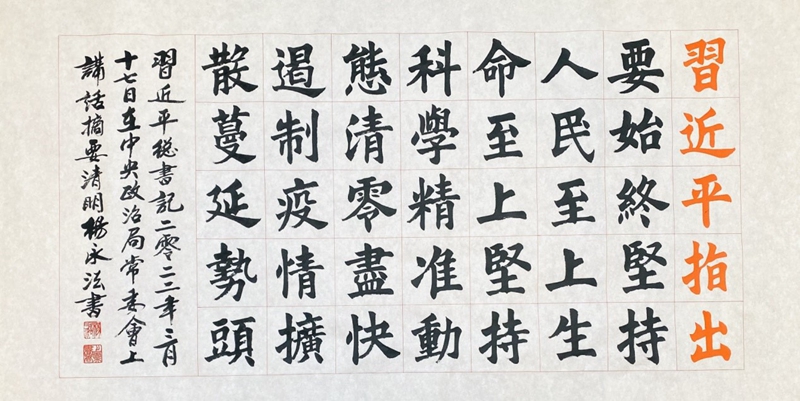 習近平指出
要始終堅持
人民至上生
命至上堅持
科學精准動
態清零盡快
遏制疫情擴
散蔓延勢頭
習近平總書記二零二二年三月
十七日在中央政治局常委會上
講話摘要清明楊永法書